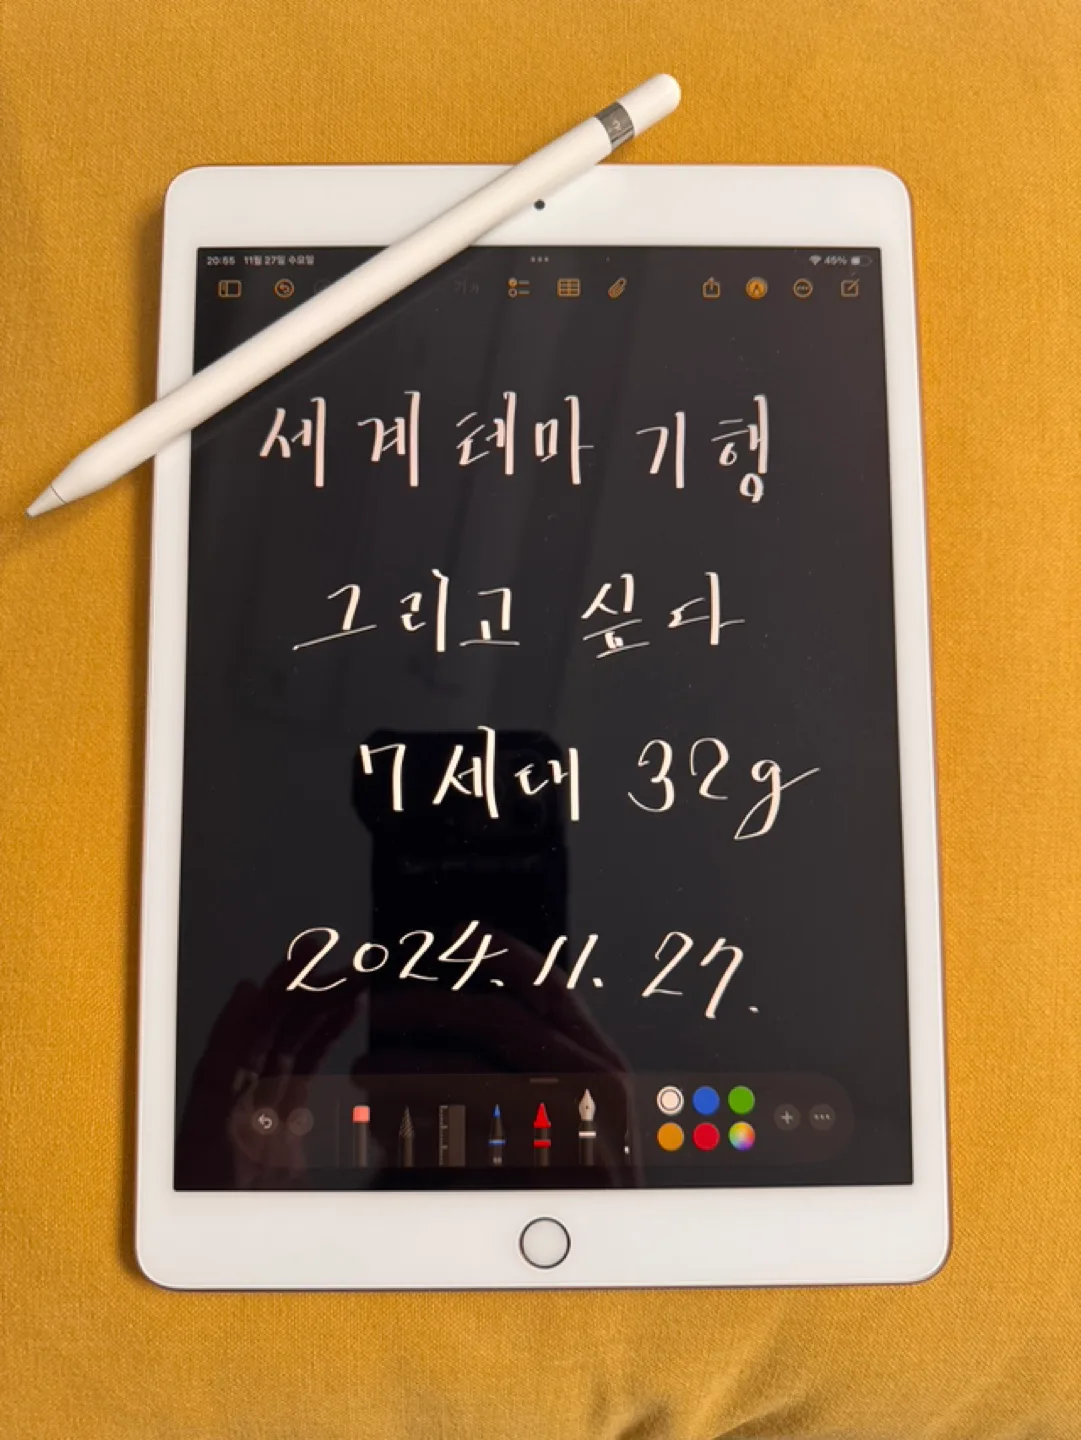 20:55 11월 27일 수요일 45%
세계테마 기행
그리고 싶다
7세대 32g
2024. 11. 27.